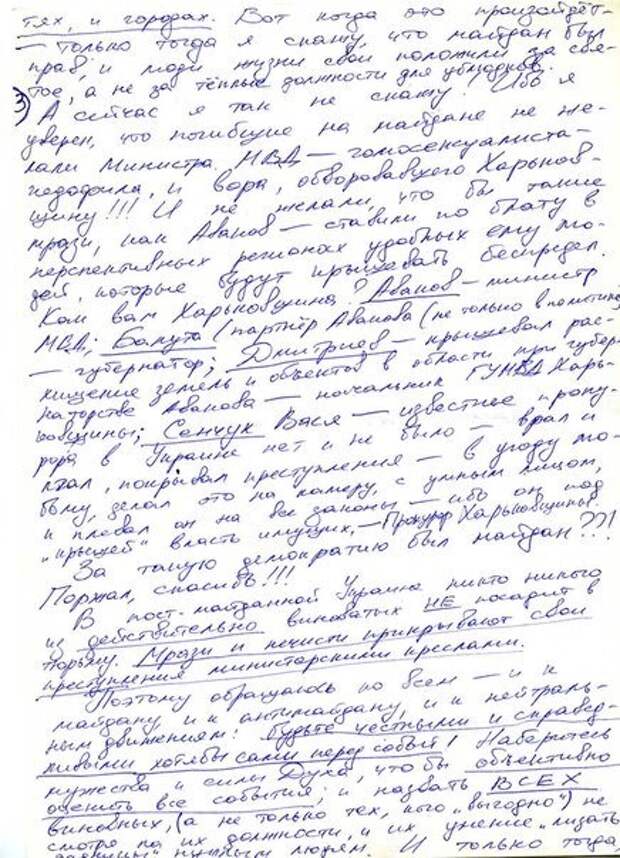 тях, и городах. Вот когда это произойдёт
— только тогда я скажу, что майдан был
прав, и люди жизни свои положили за свя-
тое, а не за тёплые должности для ублюдков.
3) А сейчас я так не скажу! Ибо я
уверен, что погибшие на майдане не же-
лали Министра МВД — гомосексуалиста-
педофила, и вора, обворовавшего Харьков-
щину!!! И не желали, что бы такие
мрази, как Аваков — ставили по блату в
перспективных регионах удобных ему лю-
дей, которые будут крышевать беспредел.
Как вам Харьковщина? Аваков — министр
МВД; Балута (партнёр Авакова (не только в политике)
— губернатор; Дмитриев — крышевал рас-
хищение земель и объектов в области при губер-
наторстве Авакова — начальник ГУМВД Харь-
ковщины; Сенчук Вася — известнее проку-
рора в Украине нет и не было — врал и
лгал, покрывал преступления — в угоду
былму, делал это на камеру, с умным лицом,
и плевал он на все законы — ибо он под
„крышей" власть имущих, — Прокурор Харьковщины.
За такую демократию был майдан??!
Поржал, спасибо!!!
В пост-майданной Украине никто никого
из действительно виноватых НЕ посадит в
тюрьму. Мрази и нечисти прикрывают свои
преступления министарскими креслами.
Поэтому обращаюсь ко всем — и к
майдану и к антимайдану, и к нейтраль-
ным движениям: будьте честными и справед-
ливыми хотябы сами перед собый! Наберитесь
мужества и силы Духа, что бы объективно
оценить все события, и назвать ВСЕХ
виновных, (а не только тех, кого „выгодно") не
смотря на их должности, и их умение „лизать
задницы" нужным людям. И только тогда,